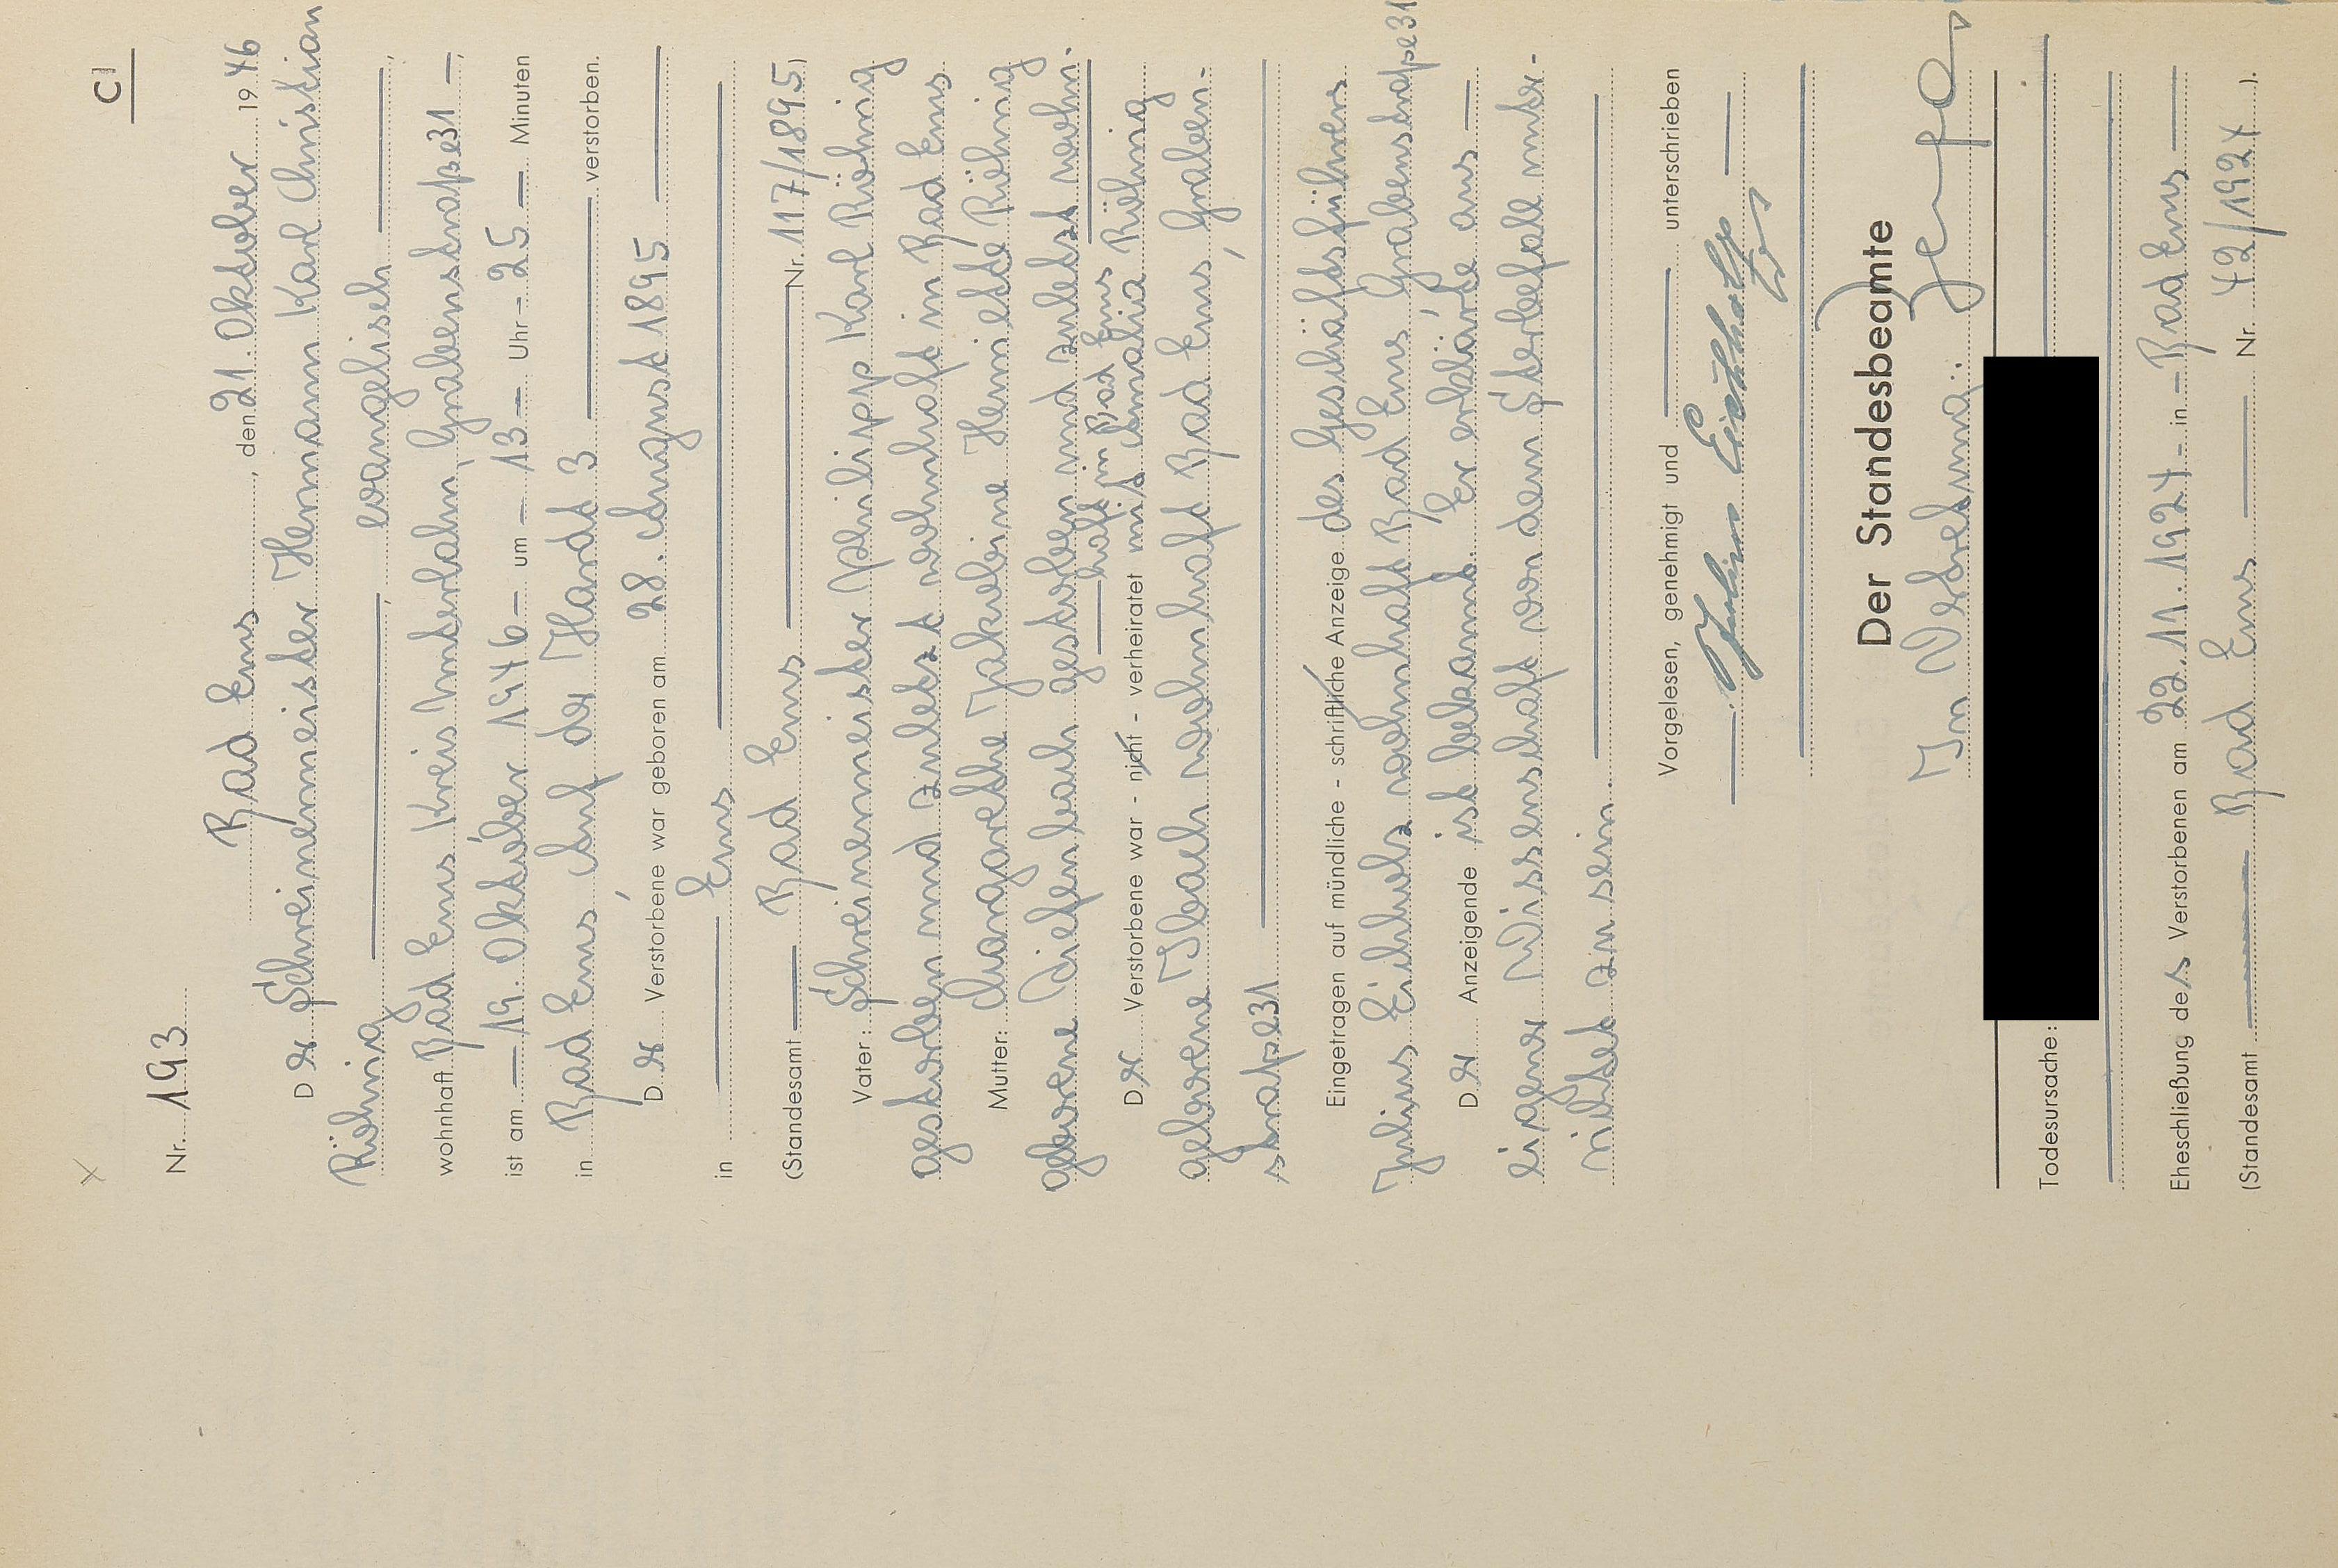 C
Nr. 193
Bad Ems, den 21. Oktober 1946
Der Schreinermeister Hermann Karl Christian
Röhrig, evangelisch,
wohnhaft Bad Ems Kreis Unterlahn, Grabenstraße 31,
ist am 19. Oktober 1946 um 13 Uhr 25 Minuten
in Bad Ems Auf der Hardt 3 verstorben.
Der Verstorbene war geboren am 28. August 1895
in Ems
(Standesamt Bad Ems Nr. 117/1895)
Vater: Schreinermeister Philipp Karl Röhrig
gestorben und zuletzt wohnhaft in Bad Ems
Mutter: Margarethe Jakobine Henriette Röhrig
geborene Diefenbach gestorben und zuletzt wohn.
haft in Bad Ems
Der Verstorbene war - nicht - verheiratet mit Amalia Röhrig
geborene Ibach wohnhaft Bad Ems, Graben-
straße 31
Eingetragen auf mündliche - schriftliche Anzeige des Geschäftsführers
Julius Eichholz wohnhaft Bad Ems, Grabenstraße 31
Der Anzeigende ist bekannt. Er erklärte aus
eigener Wissenschaft von dem Sterbefall unter-
richtet zu sein.
Vorgelesen, genehmigt und unterschrieben
Julius Eichholz
Der Standesbeamte
In Vertretung:
Todesursache:
Eheschließung des Verstorbenen am 22.11.1924 in Bad Ems
(Standesamt Bad Ems Nr. 42/1924).